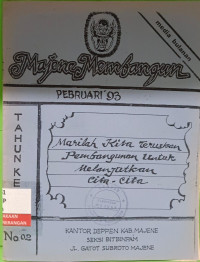 media bulanan
Majene Membangun
PEBRUARI '93
TAHUN KE
No 02
Marilah Kita teruskan
Pembangunan untuk
Melanjutkan
Cita-Cita
KANTOR DEPPEN KAB. MAJENE
SEKSI BITBINPAM
JL. GATOT SUBROTO MAJENE